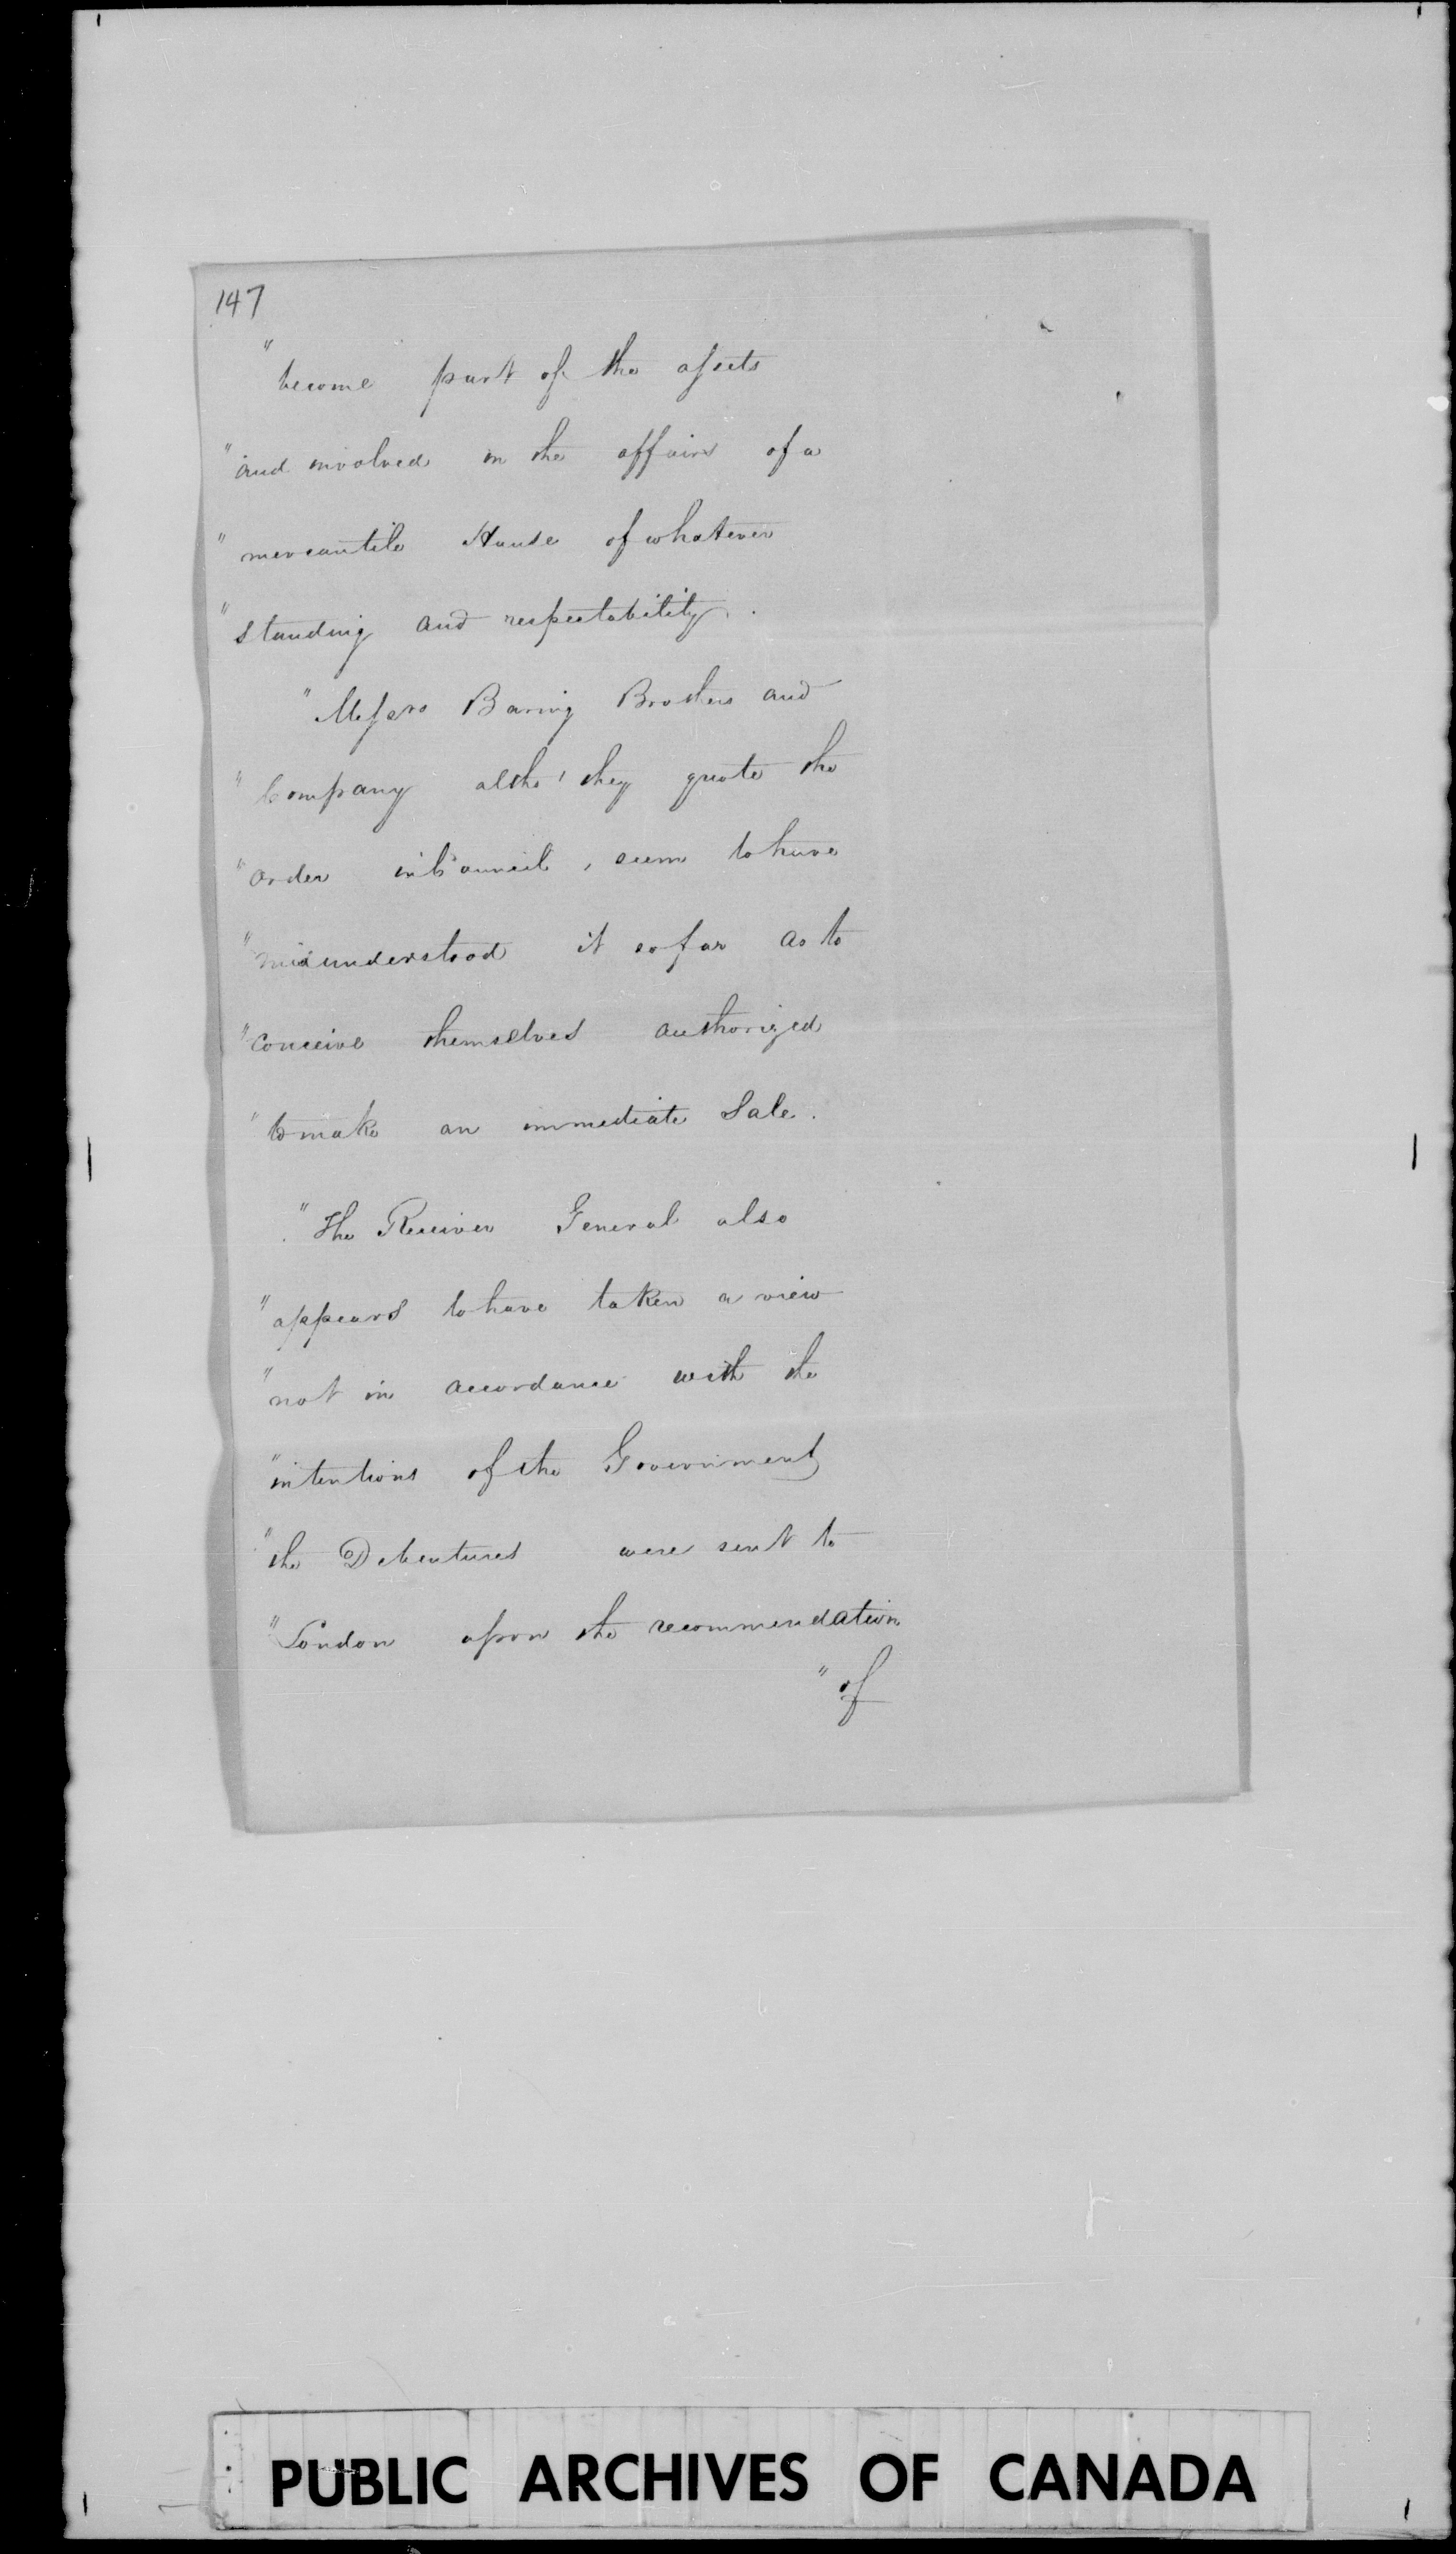 147
"become part of the assets
"and involved in the affairs of a
"mercantile House of whatever
"standing and respectability.
"Messrs Baring Brothers and
"Company altho' they quote the
"Order in Council, seem to have
"misunderstood it so far as to
"conceive themselves authorized
"to make an immediate Sale.
"The Receiver General also
"appears to have taken a view
"not in accordance with the
"intentions of the Government
"the Debentures were sent to
"London upon the recommendation
"of
PUBLIC ARCHIVES OF CANADA